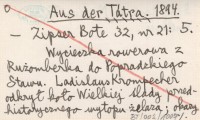 Aus der Tátra. 1894.
— Zipser Bote 32, nr 21: 5.
Wycieczka rowerowa z
Rużomberka do Popradzkiego
Stawu. Ladislaus Krompecher
odkrył koło Wielkiej ślady przed-
historycznego wytopu żelaza; okazy